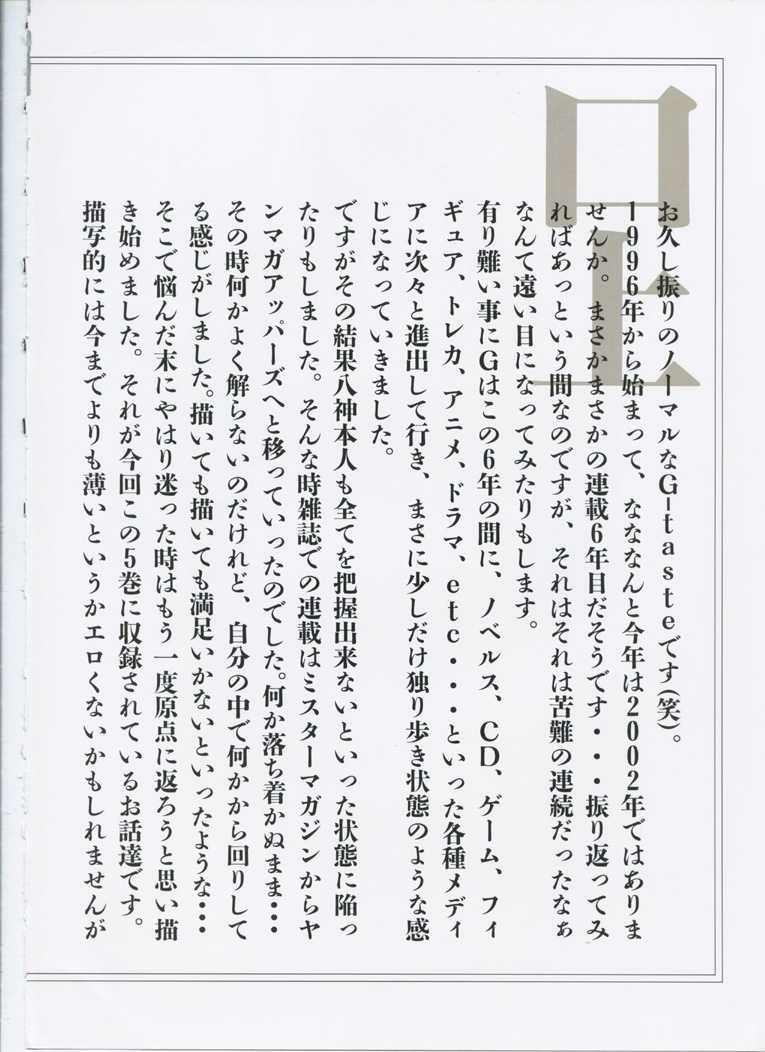 口上
お久し振りのノーマルなG-tasteです(笑)。
1996年から始まって、なななんと今年は2002年ではありま
せんか。まさかまさかの連載6年目だそうです・・・振り返ってみ
ればあっという間なのですが、それはそれは苦難の連続だったなぁ
なんて遠い目になってみたりもします。
有り難い事にGはこの6年の間に、ノベルス、CD、ゲーム、フィ
ギュア、トレカ、アニメ、ドラマ、etc・・・といった各種メディ
アに次々と進出して行き、まさに少しだけ独り歩き状態のような感
じになっていきました。
ですがその結果八神本人も全てを把握出来ないといった状態に陥っ
たりもしました。そんな時雑誌での連載はミスターマガジンからヤ
ンマガアッパーズへと移っていったのでした。何か落ち着かぬまま・・・
その時何かよく解らないのだけれど、自分の中で何かから回りして
る感じがしました。描いても描いても満足いかないといったような・・・
そこで悩んだ末にやはり迷った時はもう一度原点に返ろうと思い描
き始めました。それが今回この5巻に収録されているお話達です。
描写的には今までよりも薄いというかエロくないかもしれませんが